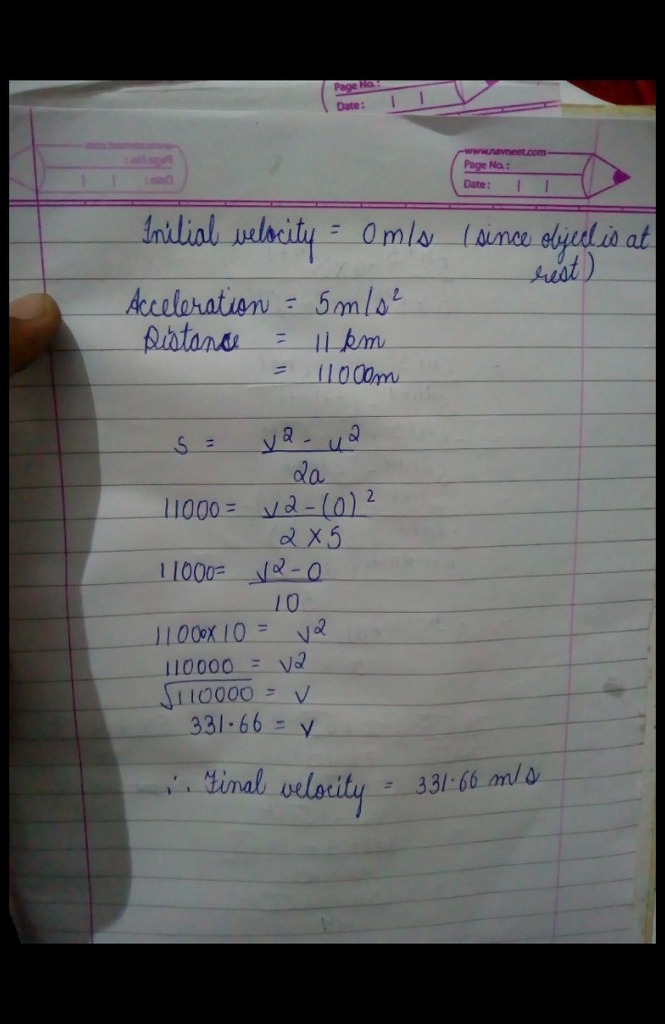 Page No.:
Date:
www.navneet.com
Page No.:
Date:
Initial velocity = 0 m/s (since object is at
rest)
Acceleration = 5 m/s²
Distance = 11 km
= 11000m
s = v² - u²
2a
11000 = v2 - (0)²
2 × 5
11000 = v2 - 0
10
11000 × 10 = v2
110000 = v2
√110000 = v
331.66 = v
∴ Final velocity = 331.66 m/s